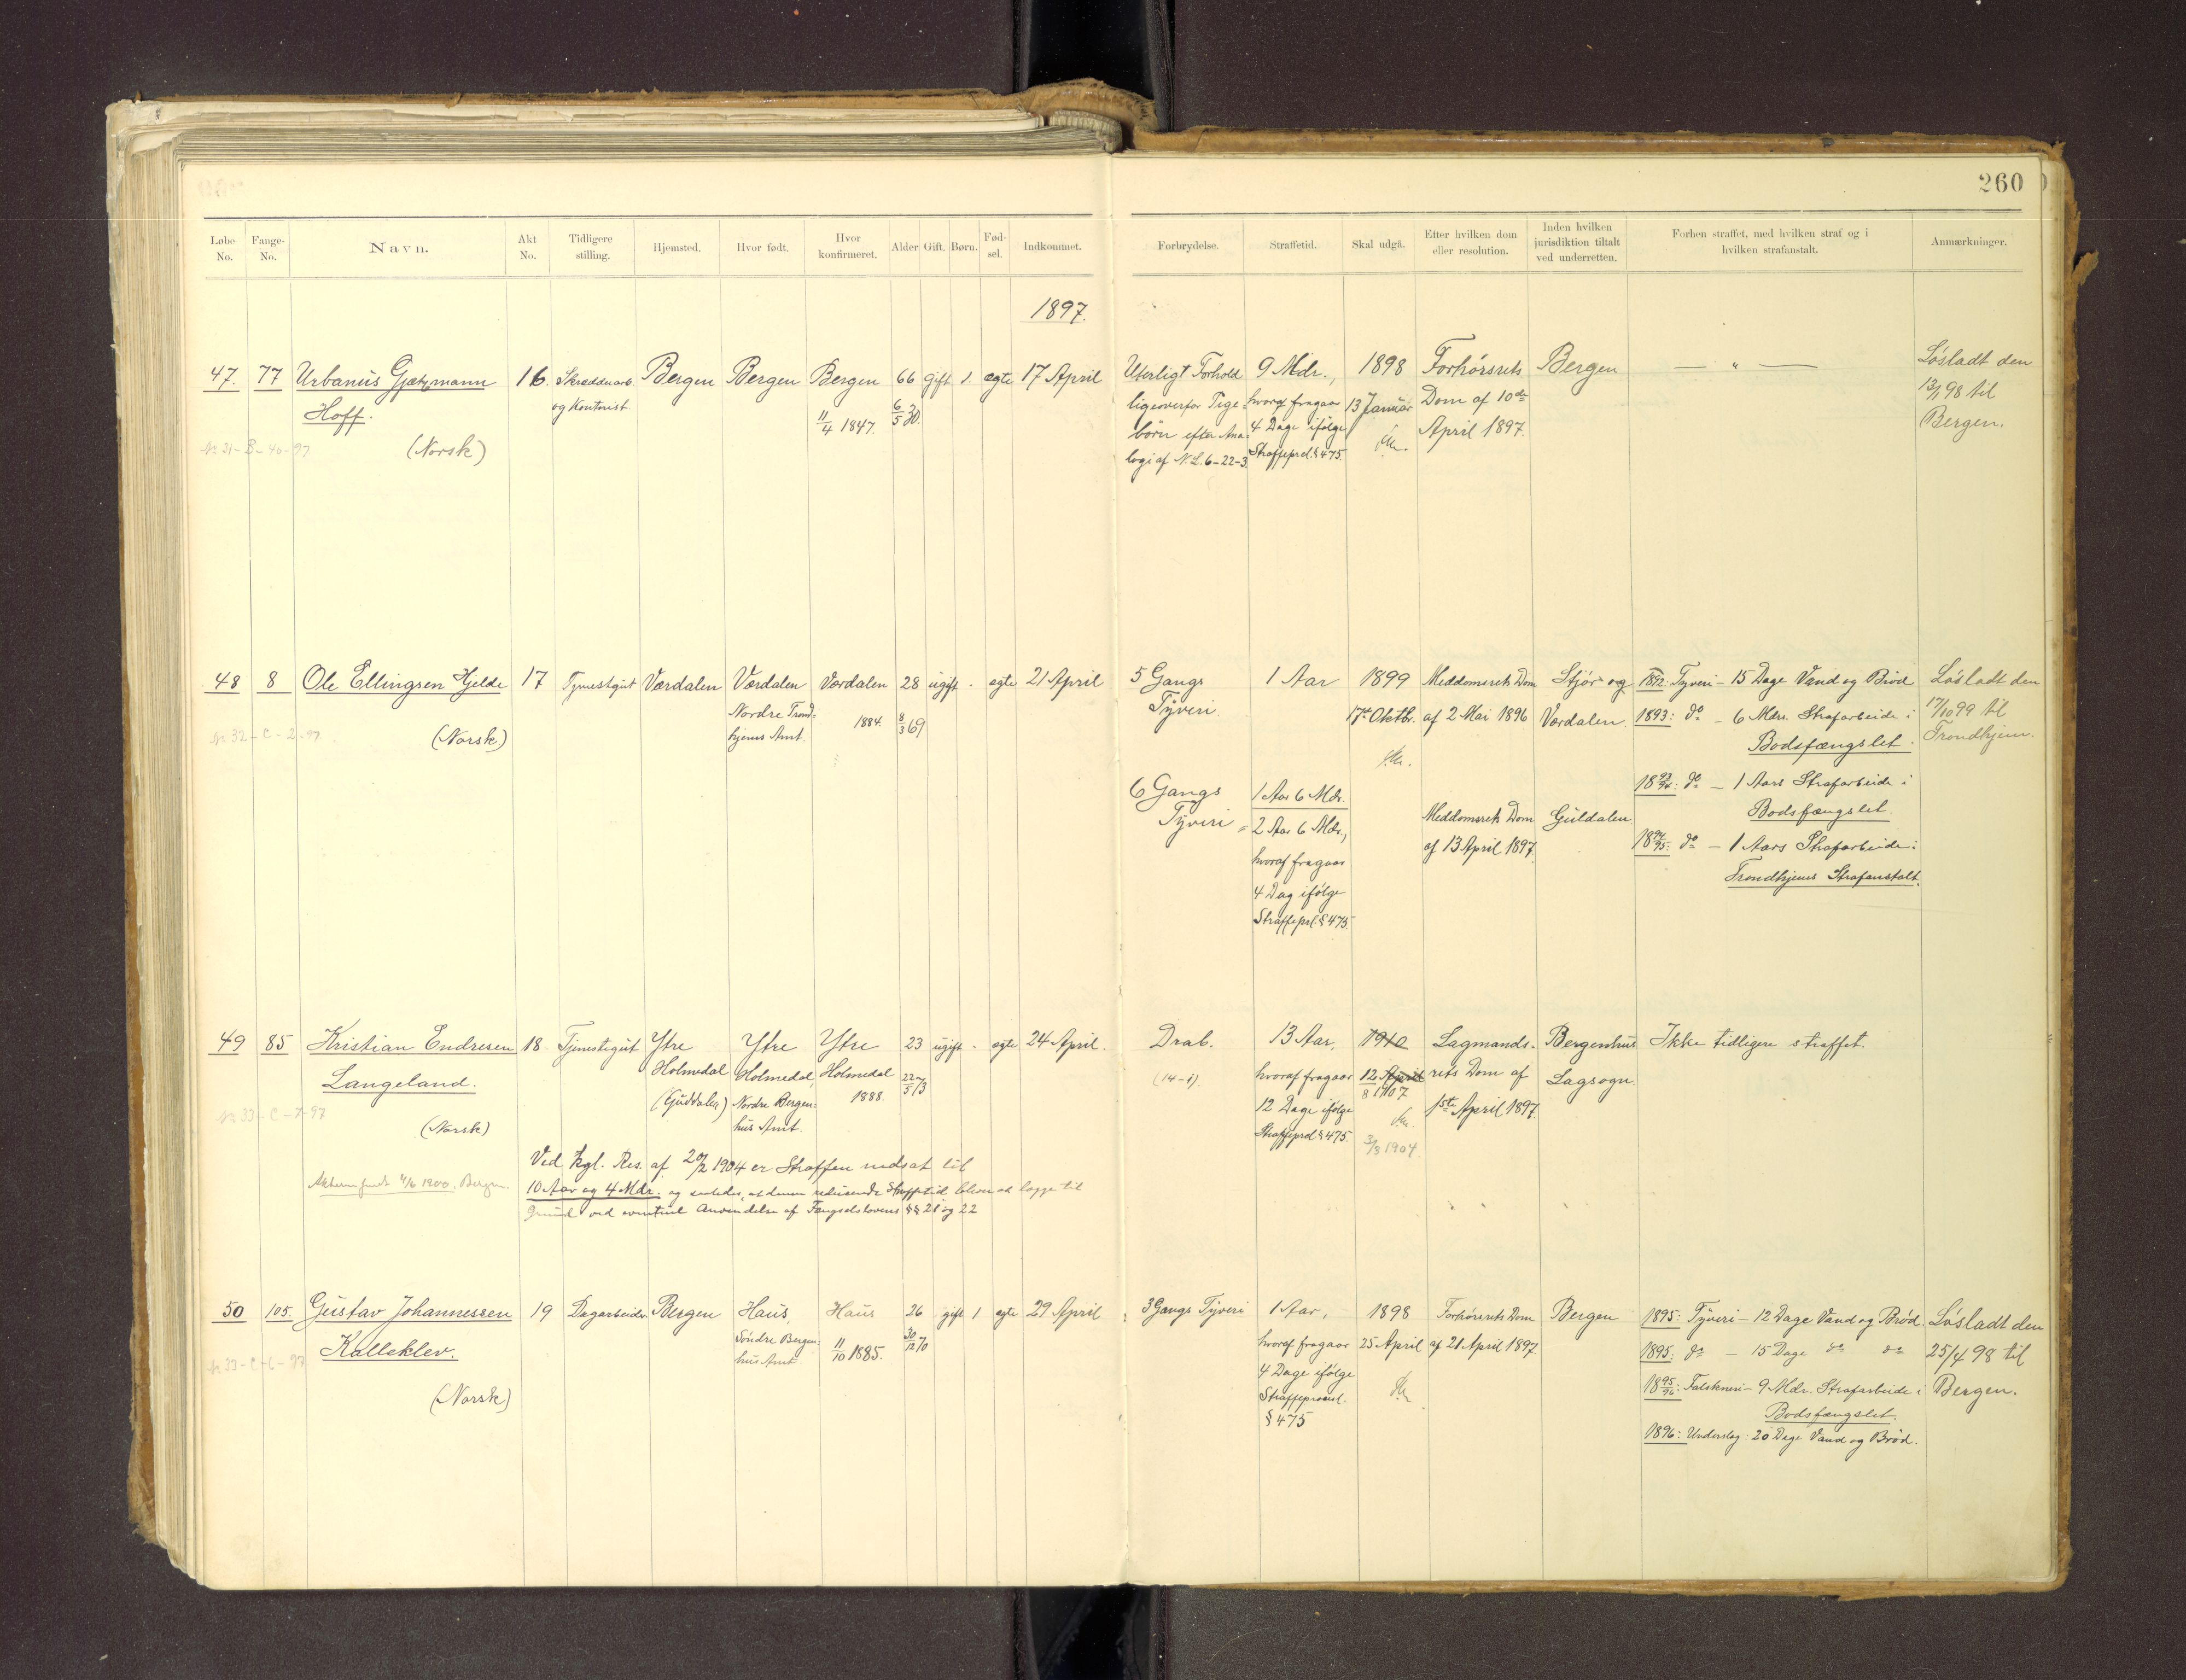 260
Løbe-No. Fange-No. Navn. Akt No. Tidligere stilling. Hjemsted. Hvor født. Hvor konfirmeret. Alder Gift. Børn. Fød-sel. Indkommet.
Forbrydelse. Straffetid. Skal udgå. Efter hvilken dom eller resolution. Inden hvilken jurisdiktion tiltalt ved underretten. Forhen straffet, med hvilken straf og i hvilken strafanstalt. Anmærkninger.
1897.
47. 77 Urbanus Gjætzmann 16 Skrædderarb. Bergen Bergen Bergen 66 gift 1. ægte 17 April
Hoff. og Kontorist 11/4 1847. 6/5 30.
No 31-B-40-97 (Norsk)
Uterligt Forhold 9 Mdr., 1898 Forhørsrets Bergen — " — Løsladt den
ligeoverfor Pige- hvoraf fragaar 13 Januar Dom af 10de 13/1 98 til
børn efter Ana- 4 Dage ifølge April 1897. Bergen.
logi af N.L. 6-22-3. Straffeprcl. § 475.
48 8 Ole Ellingsen Hjelde 17 Tjenestgut Værdalen Værdalen Værdalen 28 ugift - ægte 21 April
Nordre Trond- 1884. 8/3 69
hjems Amt.
No 32-C-2-97 (Norsk)
5 Gangs 1 Aar 1899 Meddomsrets Dom Stjør og 1892: Tyveri - 15 Dage Vand og Brød Løsladt den
Tyveri 17de Oktbr. af 2 Mai 1896 Værdalen 1893: do - 6 Mdr. Strafarbeide i 17/10 99 til
Bodsfængslet. Trondhjem.
6 Gangs 1 Aar 6 Mdr. 1893/94: do - 1 Aars Strafarbeide i
Tyveri = 2 Aar 6 Mdr., Meddomsrets Dom Guldalen Bodsfængslet.
hvoraf fragaar af 13 April 1897. 1894/95: do - 1 Aars Strafarbeide i
4 Dag ifølge Trondhjems Strafanstalt.
Straffeprl. § 475.
49 85 Kristian Endresen 18 Tjenestegut Ytre Ytre Ytre 23 ugift - ægte 24 April.
Langeland. Holmedal Holmedal, Holmedal 22/5 73
(Guddalen) Nordre Bergen- 1888.
hus Amt.
No 33-C-7-97 (Norsk)
Ved kgl. Res. af 20/2 1904 er Straffen nedsat til
10 Aar og 4 Mdr. og saaledes, at denne reducerede Straffetid bliver at lægge til
Grund ved eventuel Anvendelse af Fængselslovens §§ 21 og 22
4/6 1900. Bergen.
Drab. 13 Aar, 1910 Lagmands- Bergenhus Ikke tidligere straffet.
(14-i). hvoraf fragaar 12 April rets Dom af Lagsogn.
12 Dage ifølge 12/8 1907 1ste April 1897.
Straffeprcl § 475. 3/3 1904
50 105. Gustav Johannessen 19 Dagarbeider Bergen Haus, Haus 26 gift 1 ægte 29 April
Kalleklev. Søndre Bergen- 11/10 1885. 30/12 70
hus Amt.
No 33-C-6-97
(Norsk)
3 Gangs Tyveri 1 Aar, 1898 Forhørsrets Dom Bergen 1895: Tyveri - 12 Dage Vand og Brød. Løsladt den
hvoraf fragaar 25 April af 21 April 1897. 1895: do - 15 Dage do do 25/4 98 til
4 Dage ifølge 1895/96: Falskneri - 9 Mdr. Strafarbeide i Bergen.
Straffeprocesl. Bodsfængslet.
§ 475 1896: Underslag: 20 Dage Vand og Brød.